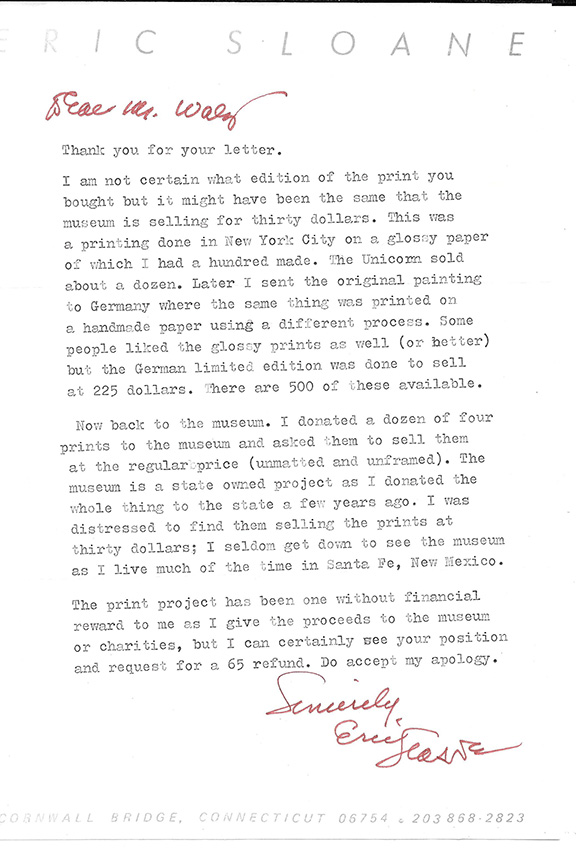 ERIC SLOANE
Dear Mr. Walz
Thank you for your letter.
I am not certain what edition of the print you
bought but it might have been the same that the
museum is selling for thirty dollars. This was
a printing done in New York City on a glossy paper
of which I had a hundred made. The Unicorn sold
about a dozen. Later I sent the original painting
to Germany where the same thing was printed on
a handmade paper using a different process. Some
people liked the glossy prints as well (or better)
but the German limited edition was done to sell
at 225 dollars. There are 500 of these available.
Now back to the museum. I donated a dozen of four
prints to the museum and asked them to sell them
at the regular price (unmatted and unframed). The
museum is a state owned project as I donated the
whole thing to the state a few years ago. I was
distressed to find them selling the prints at
thirty dollars; I seldom get down to see the museum
as I live much of the time in Santa Fe, New Mexico.
The print project has been one without financial
reward to me as I give the proceeds to the museum
or charities, but I can certainly see your position
and request for a 65 refund. Do accept my apology.
Sincerely,
Eric Sloane
CORNWALL BRIDGE, CONNECTICUT 06754 & 203 868-2823